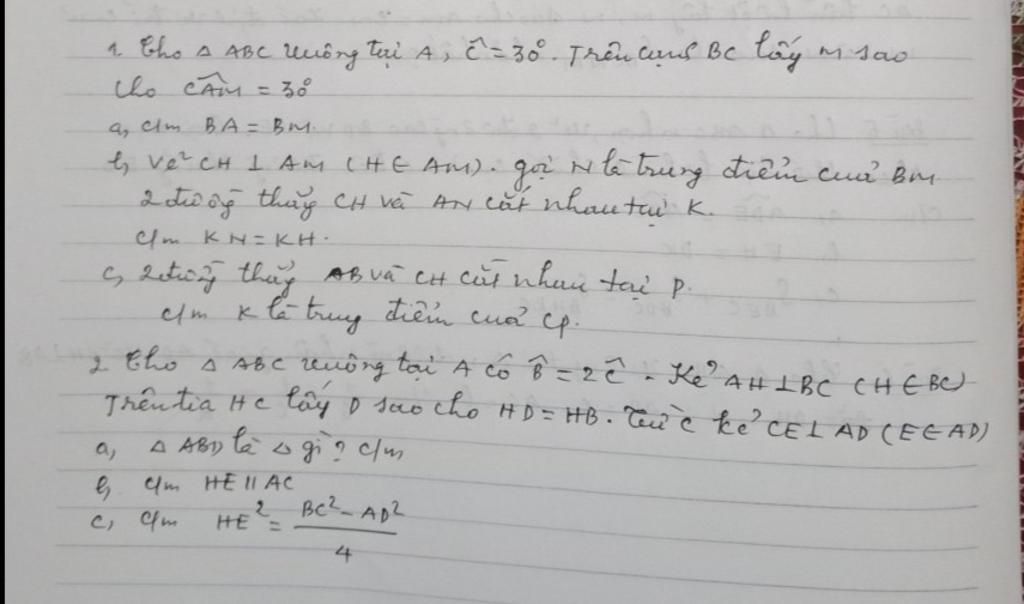 1. Cho △ ABC vuông tại A, Ĉ = 30°. Trên cạnh BC lấy M sao
cho CÂM = 30°
a, c/m BA = BM.
b, Vẽ CH ⊥ AM (H ∈ AM). gọi N là trung điểm của BM
2 đường thẳng CH và AN cắt nhau tại K.
c/m KN = KH.
c, 2 đường thẳng AB và CH cắt nhau tại P.
c/m K là trung điểm của CP.
2. Cho △ ABC vuông tại A có B̂ = 2Ĉ. Kẻ AH ⊥ BC (H ∈ BC)
Trên tia HC lấy D sao cho HD = HB. Từ C kẻ CE ⊥ AD (E ∈ AD)
a, △ ABD là △ gì? c/m
b, c/m HE // AC
c, c/m HE² = (BC² - AD²)/4